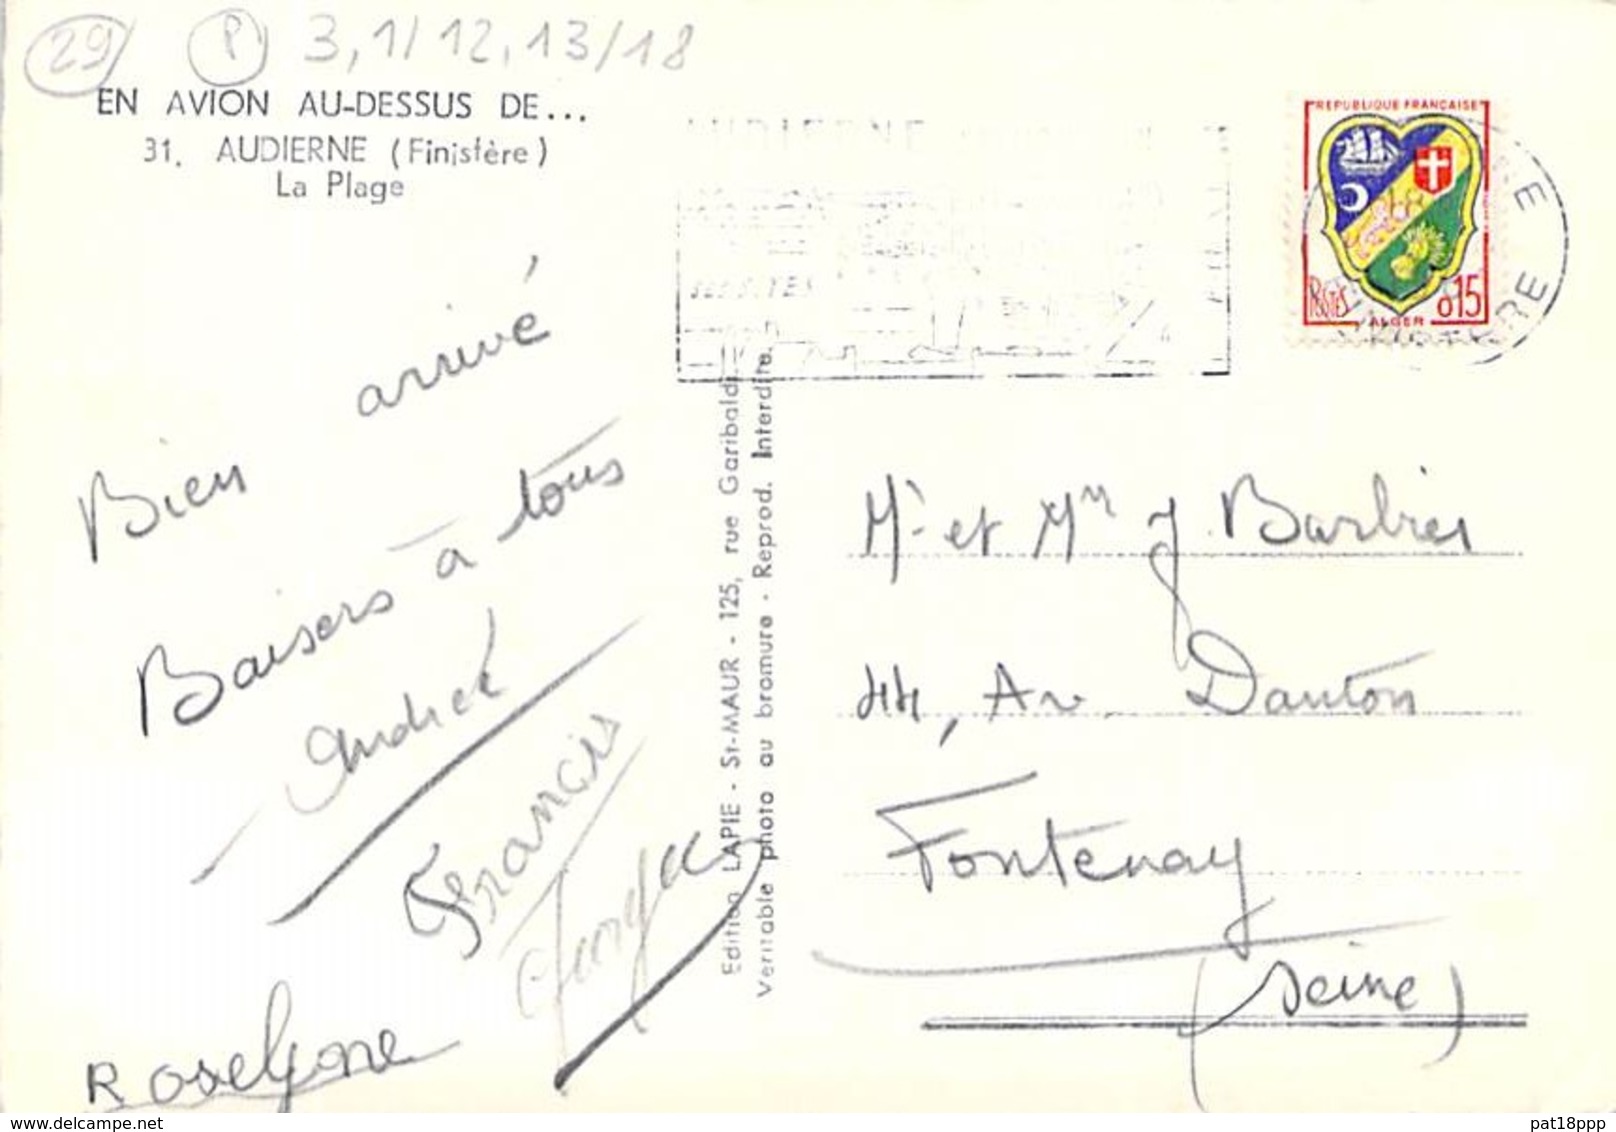 29 P 3,1/12,13/18
EN AVION AU-DESSUS DE...
31. AUDIERNE (Finistère)
La Plage
REPUBLIQUE FRANÇAISE
POSTES 0,15
ALGER
AUDIERNE
Bien arrivé
Baisers à tous
Francis
Roselyne
Edition LAPIE - St-MAUR - 125, rue Garibaldi
Véritable photo au bromure - Reprod. Interdite.
Mr et Mm J. Barbier
44, Av. Danton
Fontenay
(Seine)
delcampe.net
pat18ppp